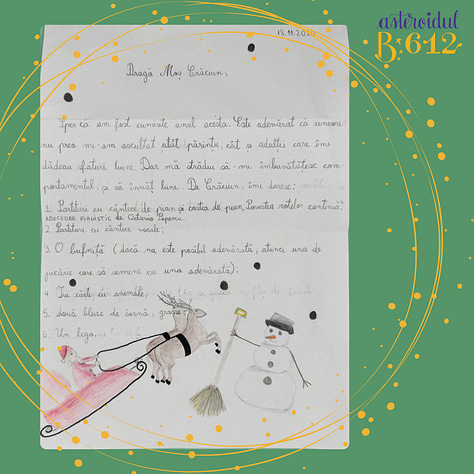 asteroidul
B:612
18.11.2020
Dragă Moș Crăciun,
Sper că am fost cuminte anul acesta. Este adevărat că uneori
nu prea mi-am ascultat atât părinții, cât și adulții care îmi
dădeau sfaturi bune. Dar mă străduiesc să-mi îmbunătățesc com-
portamentul, și să învăț bine. De Crăciun, îmi doresc:
1. Partituri cu cântece de pian și cartea de pian, Povestea notelor continuă,
ABECEDAR PIANISTIC de Octavia Popescu
2. Partituri cu cântece vocale;
3. O bufniță (dacă nu este posibil adevărată, atunci una de
jucărie care să semene cu una adevărată);
4. Trei cărți cu animale, de iarnă;
5. două bluze de iarnă, groase;
6. Un lego